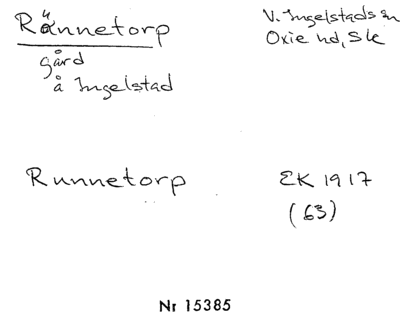 Rännetorp
gård
å Ingelstad
V. Ingelstads sn
Oxie hd, Sk
Runnetorp
EK 1917
(63)
Nr 15385